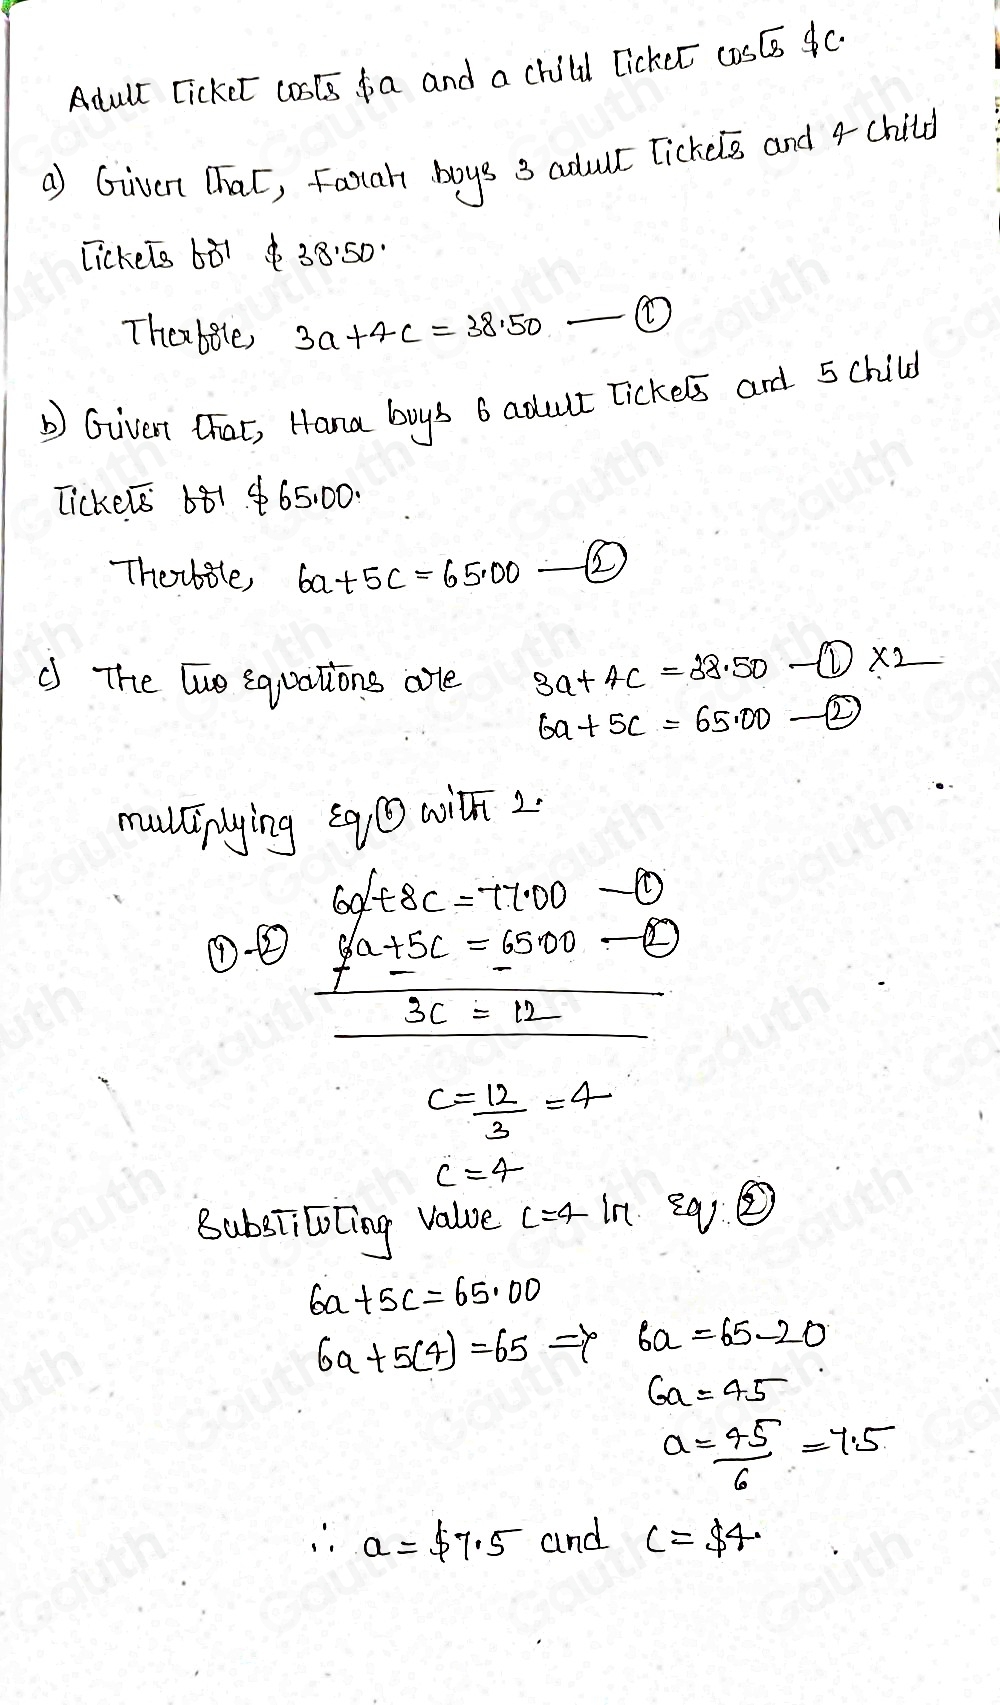 Adult ticket costs $a and a child ticket costs $c.
a) Given that, Farah buys 3 adult tickets and 4 child
tickets for $ 38.50.
Therfore, 3a+4c = 38.50 — ①
b) Given that, Hana buys 6 adult tickets and 5 child
tickets for $65.00.
Therfore, 6a+5c = 65.00 — ②
c) The two equations are 3a+4c = 38.50 — ① ×2
6a+5c = 65.00 — ②
multiplying Eq ① with 2.
6a+8c = 77.00 — ①
①-② 6a+5c = 65.00 — ②
- - -
3c = 12
c = 12/3 = 4
c = 4
Substituting value c=4 in Eq. ②
6a+5c = 65.00
6a+5(4) = 65 ⇒ 6a = 65-20
6a = 45
a = 45/6 = 7.5
∴ a = $7.5 and c = $4.
Gauth